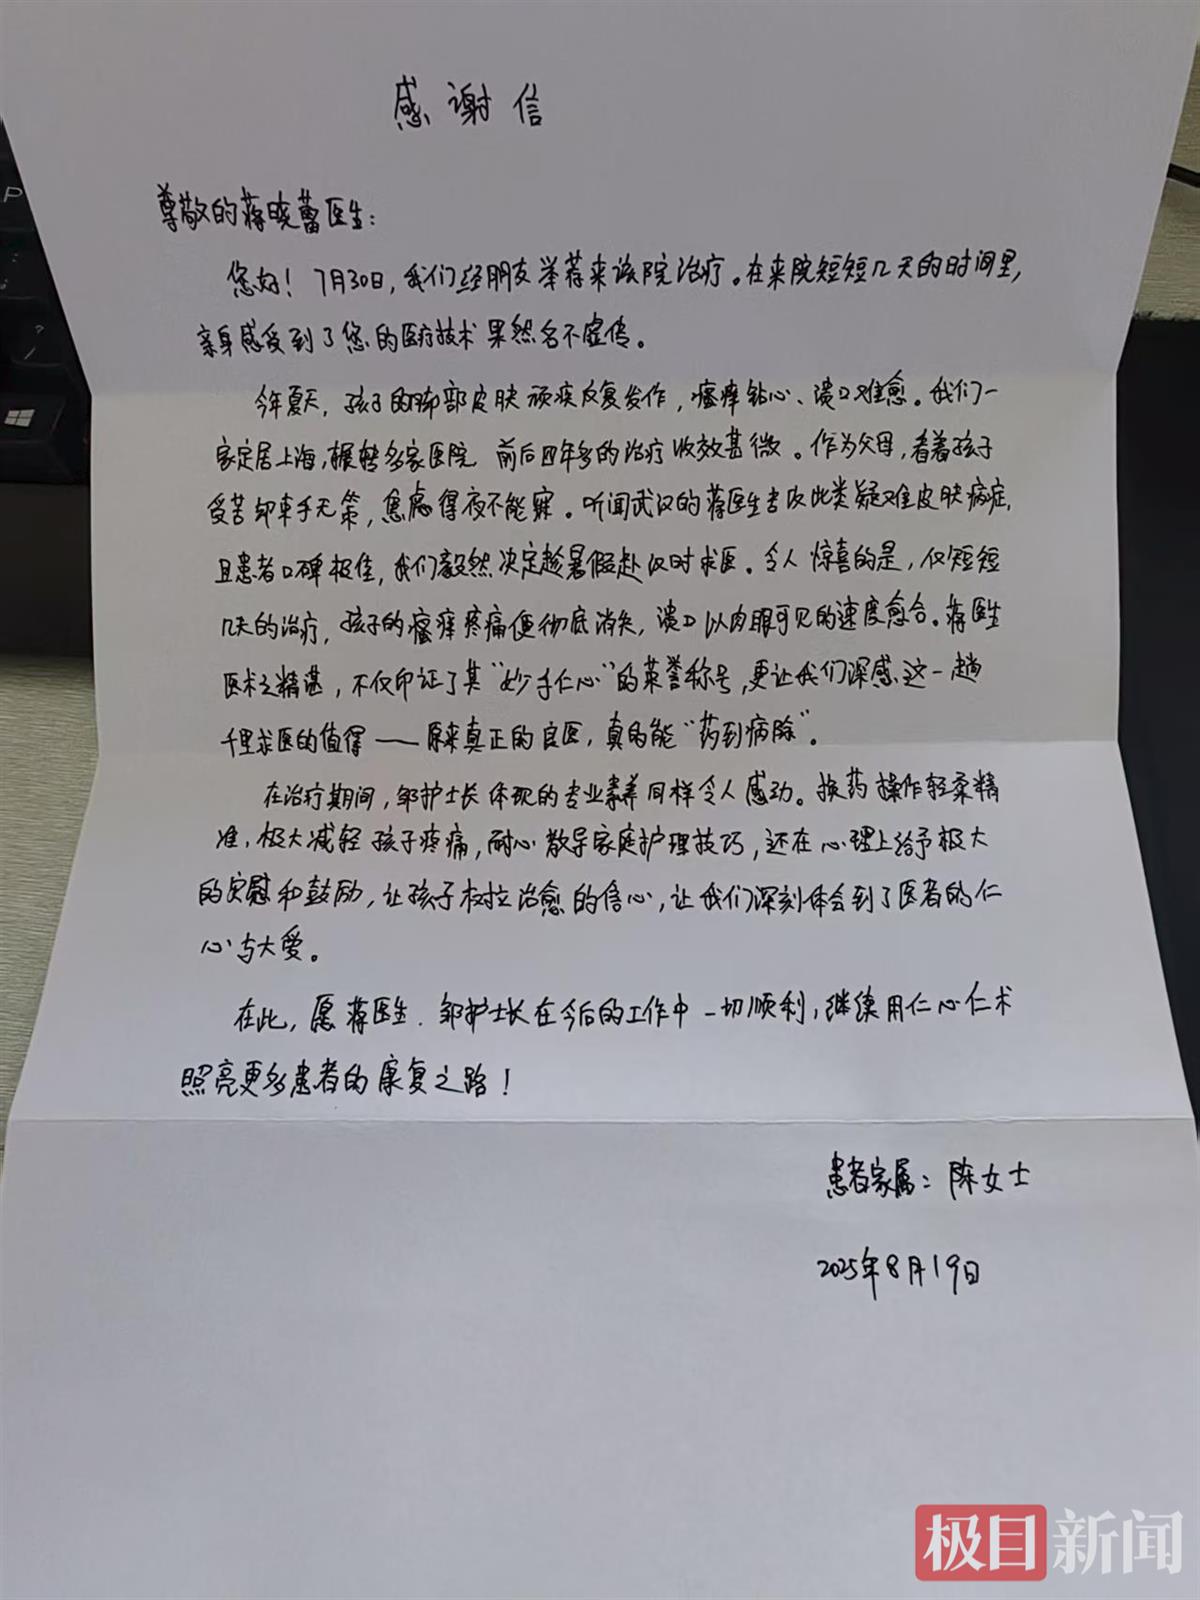 感谢信
尊敬的蒋晓蕾医生:
您好！7月30日,我们经朋友举荐来该院治疗。在来院短短几天的时间里,
亲身感受到了您的医疗技术果然名不虚传。
今年夏天,孩子的脚部皮肤顽疾反复发作,瘙痒钻心、溃口难愈。我们一
家定居上海,辗转多家医院,前后四年多的治疗收效甚微。作为父母,看着孩子
受苦却束手无策,焦虑得夜不能寐。听闻武汉的蒋医生专攻此类疑难皮肤病症,
且患者口碑极佳,我们毅然决定趁暑假赴汉时求医。令人惊喜的是,仅短短
几天的治疗,孩子的瘙痒疼痛便彻底消失,溃口以肉眼可见的速度愈合。蒋医生
医术之精湛,不仅印证了其“妙手仁心”的荣誉称号,更让我们深感这一趟
千里求医的值得——原来真正的良医,真的能“药到病除”。
在治疗期间,邹护士长体现的专业素养同样令人感动。换药操作轻柔精
准,极大减轻孩子疼痛,耐心教导家庭护理技巧,还在心理上给予极大
的安慰和鼓励,让孩子树立治愈的信心,让我们深刻体会到了医者的仁
心与大爱。
在此,愿蒋医生、邹护士长在今后的工作中一切顺利,继续用仁心仁术
照亮更多患者的康复之路！
患者家属:陈女士
2025年8月19日
极目新闻
P
?
/